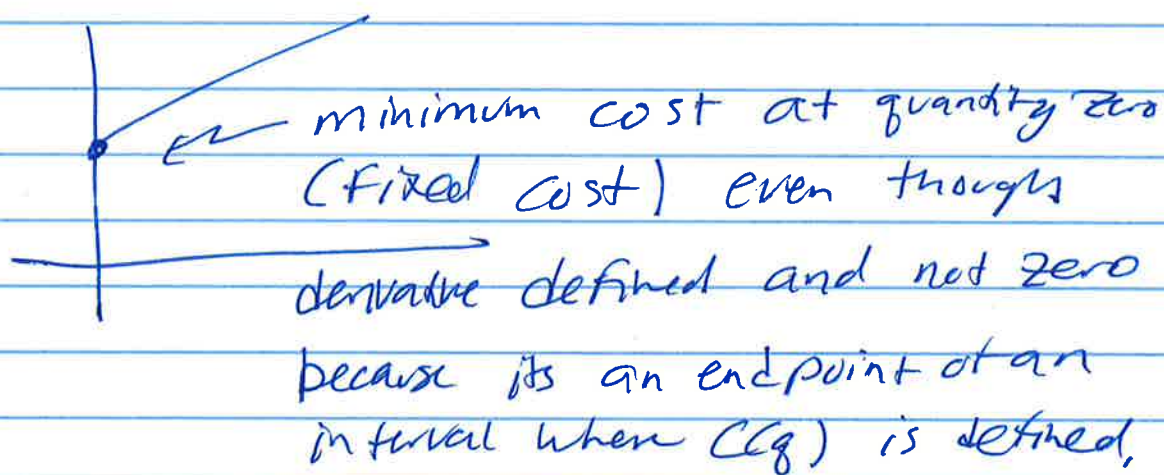 minimum cost at quantity zero
(Fixed cost) even though
derivative defined and not zero
because its an endpoint of an
interval where C(q) is defined,